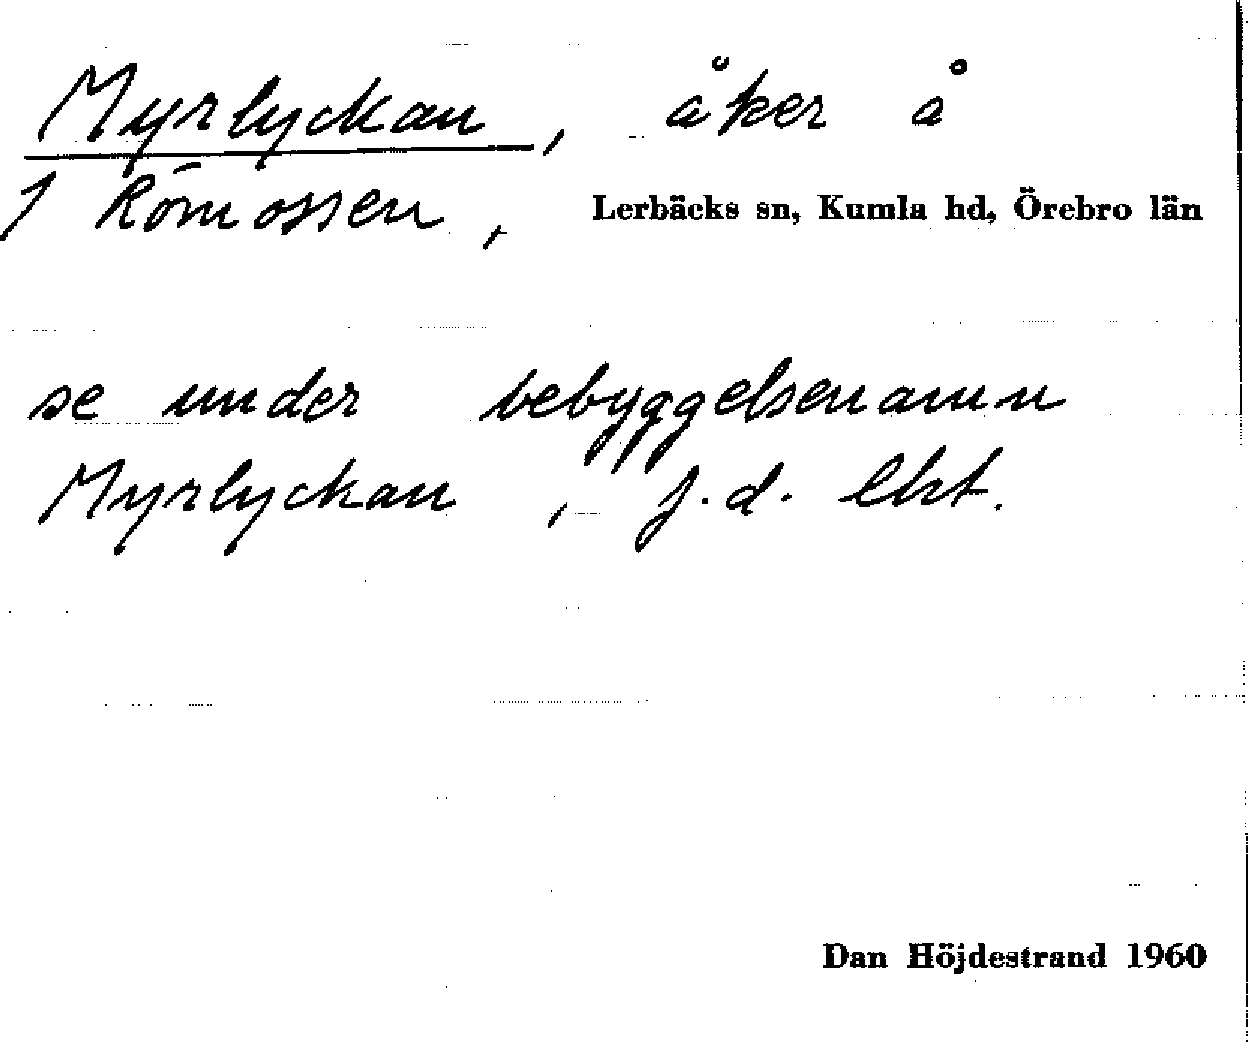 Myrlyckan, åker å
1 Römossen, Lerbäcks sn, Kumla hd, Örebro län
se under bebyggelsenamn
Myrlyckan, f.d. lht.
Dan Höjdestrand 1960